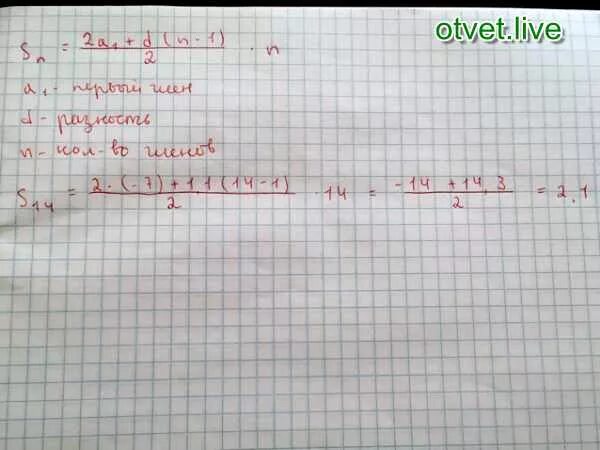 otvet.live
Sn = 2a₁ + d (n - 1) / 2 · n
a₁ - первый член
d - разность
n - кол-во членов
S₁₄ = 2 · (-7) + 1,1 (14 - 1) / 2 · 14 = -14 + 14,3 / 2 = 2,1